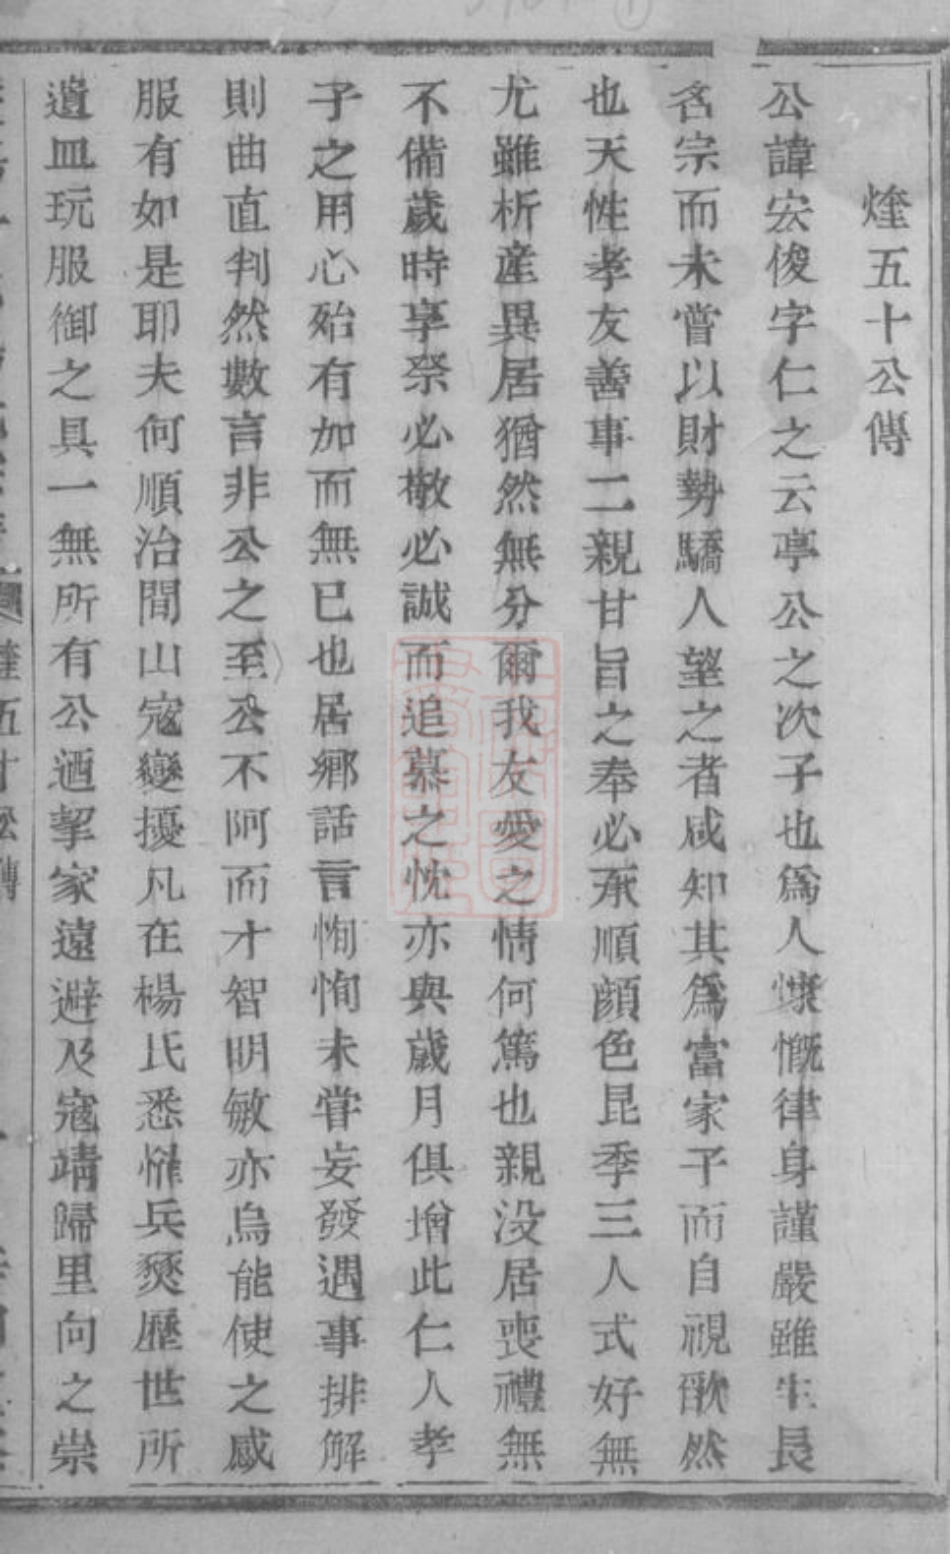 煃五十公傳
公諱宏俊字仁之云亭公之次子也爲人慷慨律身謹嚴雖生長
名宗而未嘗以財勢驕人望之者咸知其爲富家子而自視欿然
也天性孝友善事二親甘旨之奉必承順顔色昆季三人式好無
尤雖析產異居猶然無分爾我友愛之情何篤也親没居喪禮無
不備歲時享祭必敬必誠而追慕之忱亦與歲月俱增此仁人孝
子之用心殆有加而無已也居鄉話言恂恂未甞妄發遇事排解
則曲直判然數言非公之至公不阿而才智明敏亦烏能使之感
服有如是耶夫何順治間山寇變擾凡在楊氏悉罹兵燹歷世所
遺皿玩服御之具一無所有公迺挈家遠避及寇靖歸里向之崇
五十公傳